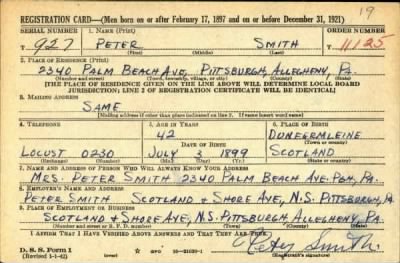 19
REGISTRATION CARD—(Men born on or after February 17, 1897 and on or before December 31, 1921)
SERIAL NUMBER 1. NAME (Print) ORDER NUMBER
T 927 PETER SMITH 11125
(First) (Middle) (Last)
2. PLACE OF RESIDENCE (Print)
2340 PALM BEACH AVE, PITTSBURGH, ALLEGHENY, PA.
(Number and street) (Town, township, village, or city) (County) (State)
[THE PLACE OF RESIDENCE GIVEN ON THE LINE ABOVE WILL DETERMINE LOCAL BOARD
JURISDICTION; LINE 2 OF REGISTRATION CERTIFICATE WILL BE IDENTICAL]
3. MAILING ADDRESS
SAME
[Mailing address if other than place indicated on line 2. If same insert word same]
4. TELEPHONE 5. AGE IN YEARS 6. PLACE OF BIRTH
42 DUNEGRMLEINE
DATE OF BIRTH (Town or county)
LOCUST 0230 JULY 3 1899 SCOTLAND
(Exchange) (Number) (Mo.) (Day) (Yr.) (State or country)
7. NAME AND ADDRESS OF PERSON WHO WILL ALWAYS KNOW YOUR ADDRESS
MRS. PETER SMITH 2340 PALM BEACH AVE. PGH, PA.
8. EMPLOYER'S NAME AND ADDRESS
PETER SMITH SCOTLAND & SHORE AVE, N.S. PITTSBURGH, PA
9. PLACE OF EMPLOYMENT OR BUSINESS
SCOTLAND & SHORE AVE, N.S. PITTSBURGH, ALLEGHENY PA.
(Number and street or R. F. D. number) (Town) (County) (State)
I AFFIRM THAT I HAVE VERIFIED ABOVE ANSWERS AND THAT THEY ARE TRUE.
D. S. S. Form 1
(Revised 4-1-42) GPO 16—21630-1 Peter Smith
(Registrant's signature)